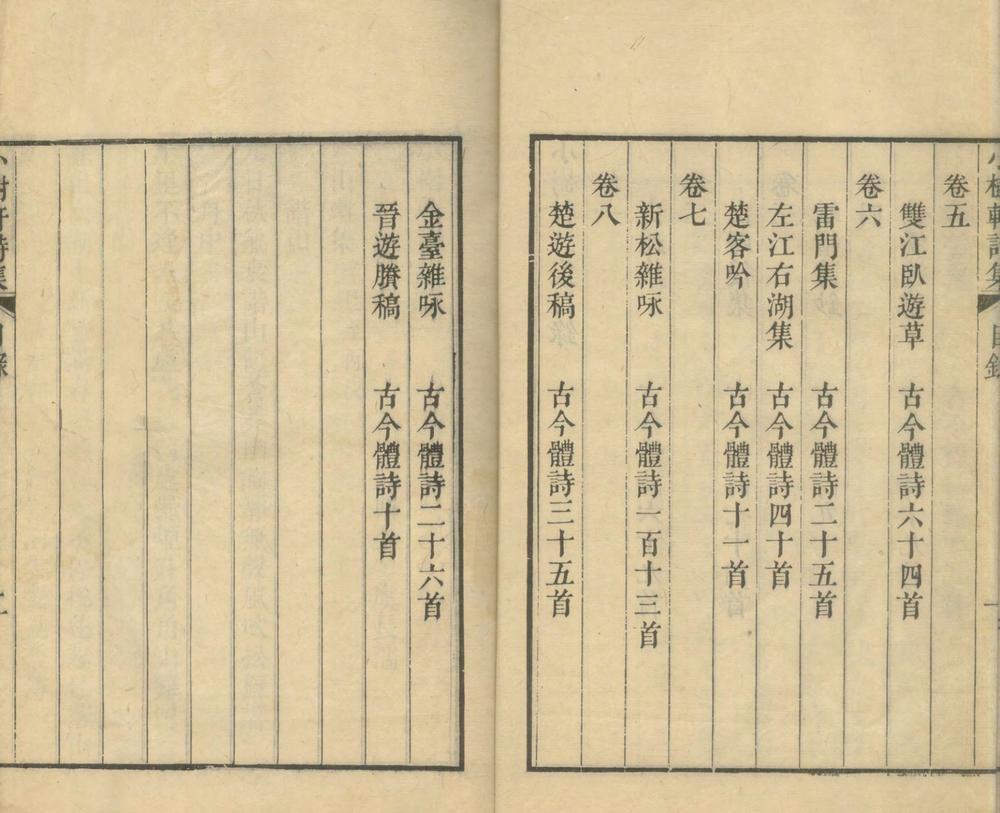 卷五
雙江臥遊草 古今體詩六十四首
卷六
雷門集 古今體詩二十五首
左江右湖集 古今體詩四十首
楚客吟 古今體詩十一首
卷七
新松雜咏 古今體詩一百十三首
卷八
楚遊後稿 古今體詩三十五首
金臺雜咏 古今體詩二十六首
晉遊賸稿 古今體詩十首